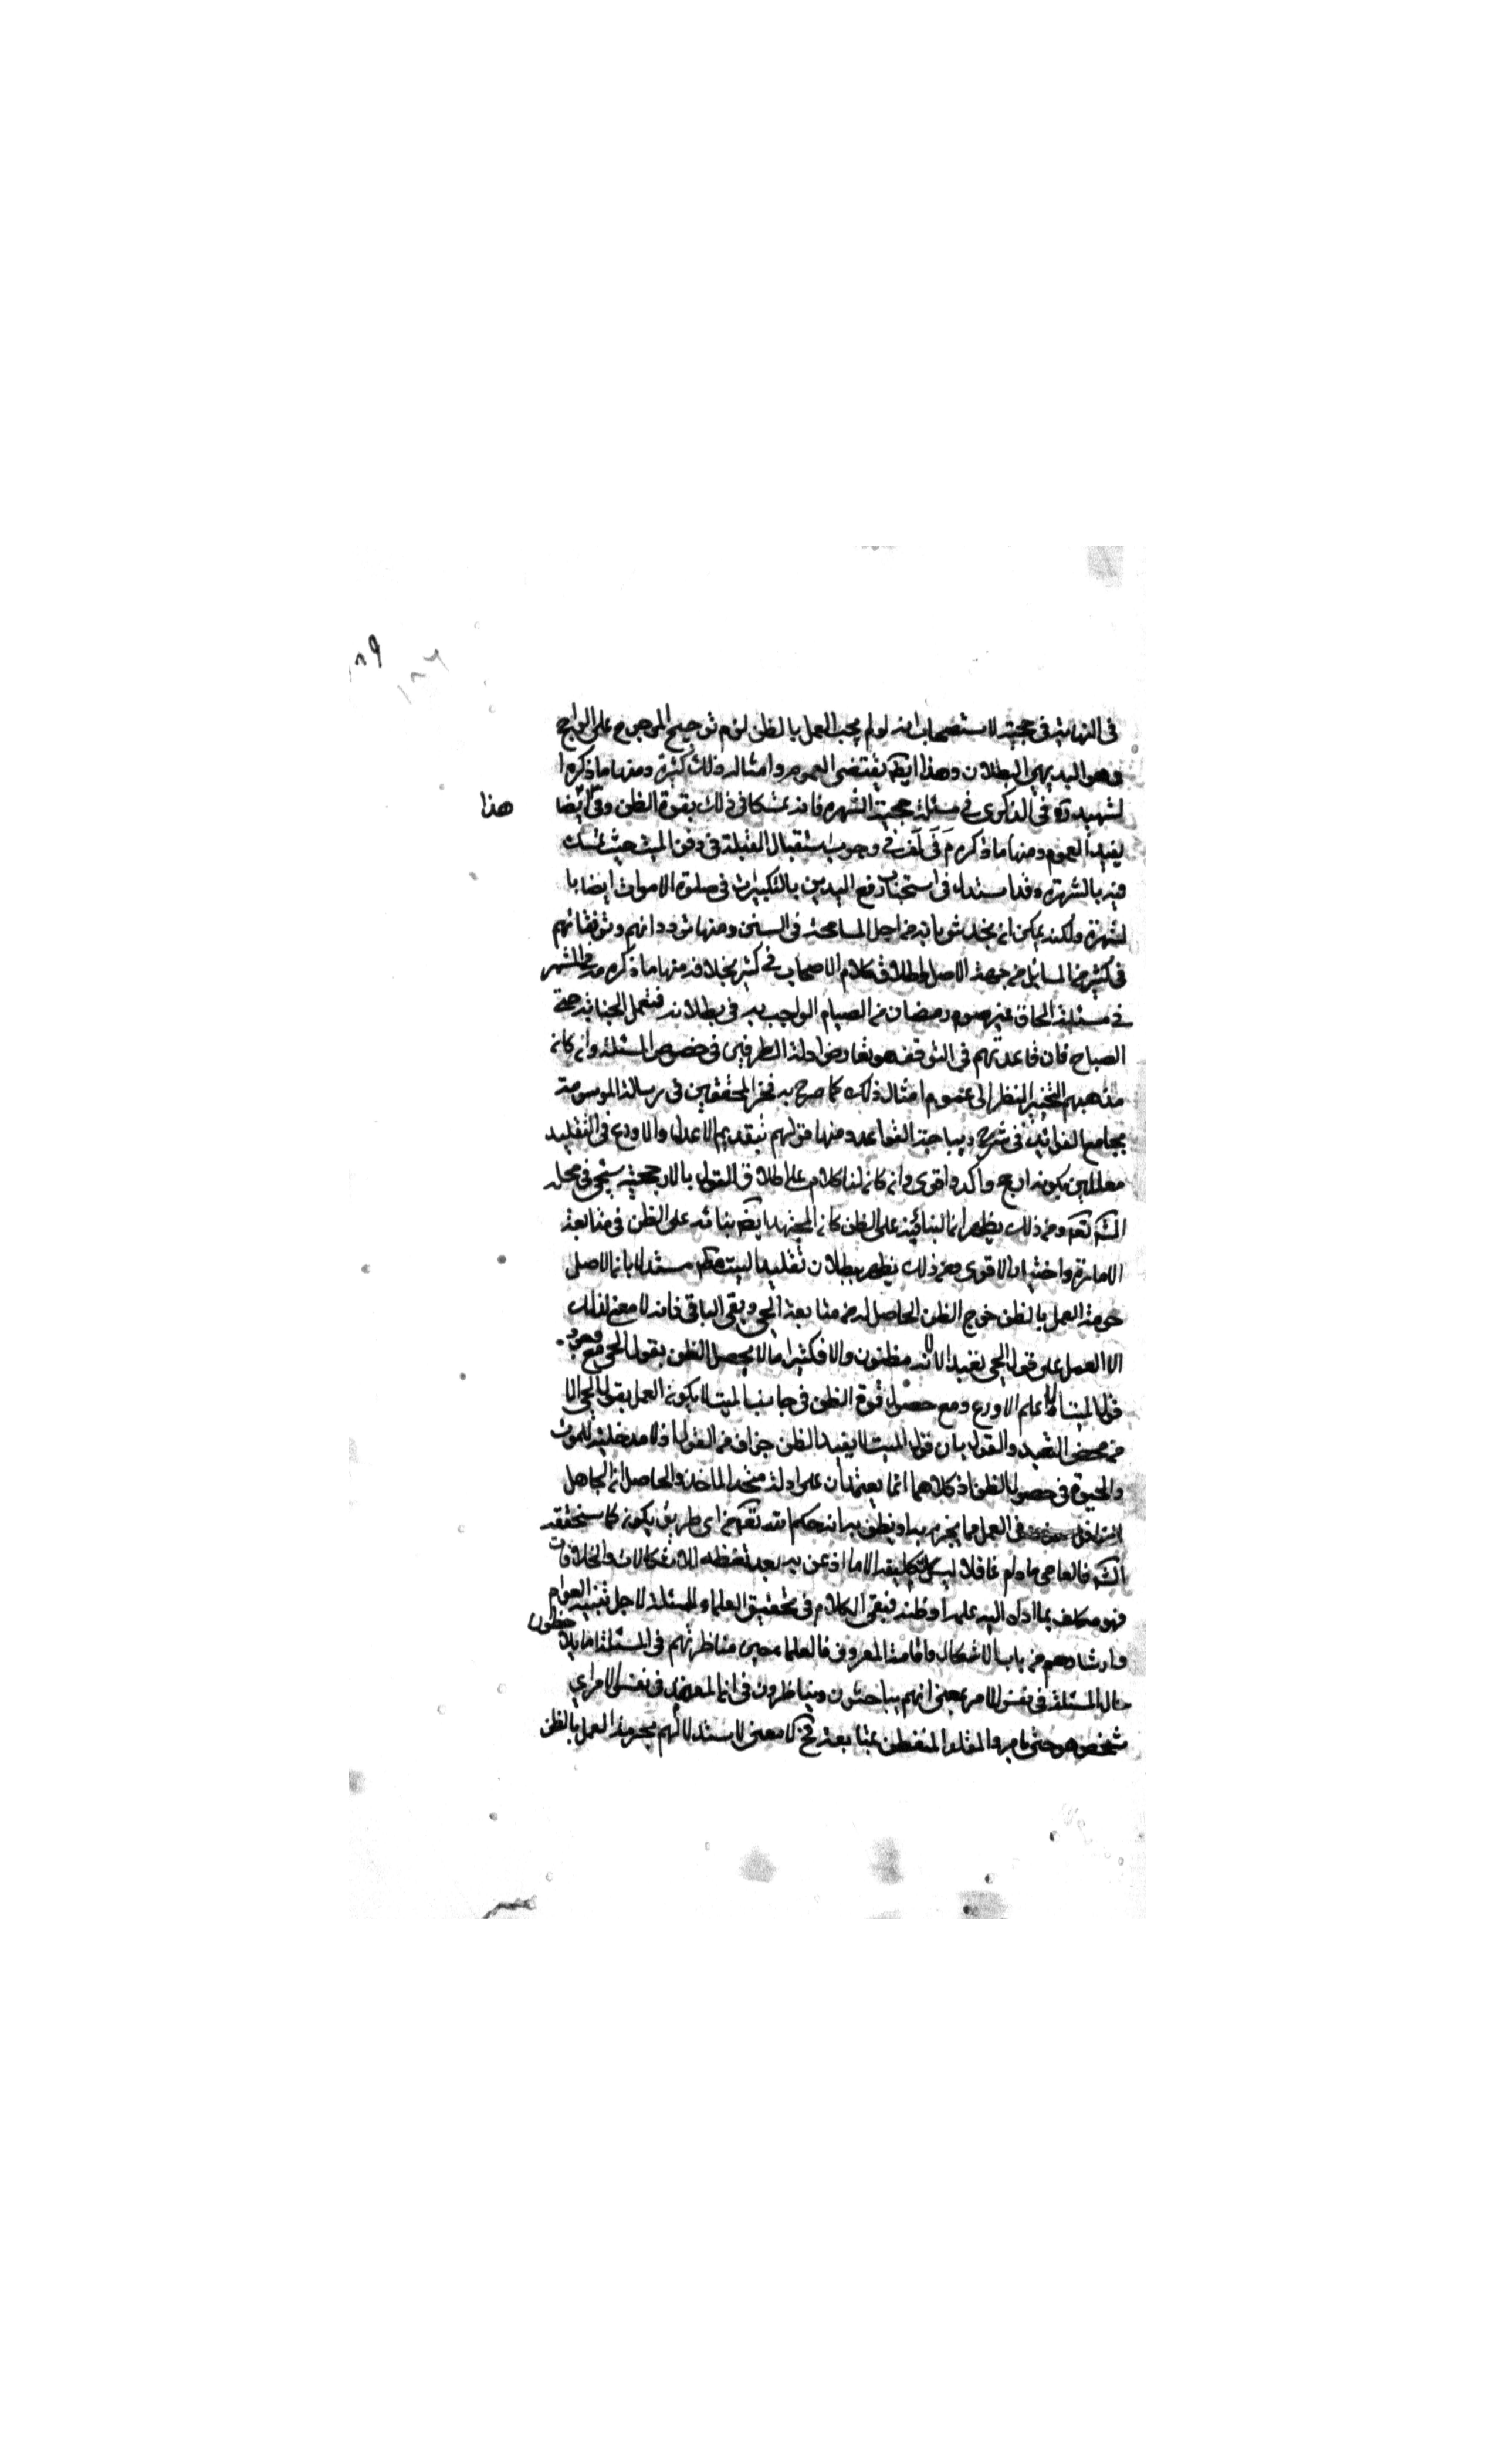 ٨٩
في النهاية في حجية الاستصحاب انه لو لم يجب العمل بالظن لزم ترجيح المرجوح على الراجح
وهو البديهي البطلان وهذا ايضا يقتضي العموم وامثاله ذلك كثيرة ومنها ما ذكره ا
لشهيد ره في الذكرى في مسئلة حجية الشهرة فانه تمسكا في ذلك بقوة الظن وقال ايضا هذا
يفيد العموم ومنها ما ذكره في وجوب استقبال القبلة في دفن الميت حيث تمسك
فيه بالشهرة وقد استدل في استحباب رفع اليدين بالتكبيرات في صلوة الاموات ايضا با
لشهرة ولكنه يمكن ان يخدش بانه من اجل المسامحة في السنن ومنها تردداتهم وتوقفاتهم
في كثير من المسايل من جهة الاصل واطلاق كلام الاصحاب في كثير بخلافه منها ما ذكره
في مسئلة الحاق غير صوم رمضان من الصيام الواجب به في بطلانه فتعمل الجنابة حتى
الصباح فان قاعدتهم في التوقف هو تعارض ادلة الطرفين في خصوص المسئلة وان كان
مذهبهم التخيير النظر الى عموم امثال ذلك كما صرح به فخر المحققين في رسالة الموسومة
بجامع الفوائد في شرح ديباجة القواعد ومنها قولهم بتقديم الاعدل والاورع في التقليد
معللين بكونه ارجح واكد واقوى وان كان لنا كلام على اطلاق القول بالارجحية سيجئ في محله
انشاء الله تعالى ومن ذلك يظهر ان البناء على الظن كان المجتهد ايضا بنائه على الظن في متابعة
الامارة واختيار الاقوى ومن ذلك يظهر بطلان تقليد الميت مستدلا بان الاصل
حرمة العمل بالظن خرج الظن الحاصل له من متابعة الحي وبقي الباقي فانه لا معنى لذلك
الا العمل على قول الحي تعبدا لا لانه مظنون والا فكثيرا ما لا يحصل الظن بقول الحي مع وجود
قول الميت الاعلم الاورع ومع حصول قوة الظن في جانب الميت لا يكون العمل بقول الحي الا
من محض التعبد والقول بان قول الميت لا يفيد الظن جزاف من القول اذ لا مدخلية للموت
والحيوة في حصول الظن اذ كلاهما انما يعتمدان على ادلة متحد الماخذ والحاصل ان الجاهل
في العمل مما يجزم به او يظن به انه حكم الله تعالى من اي طريق يكون كما سنحققه
انشاء الله فالعامي ما دام غافلا ليس تكليفه الا ما اذعن به بعد تفطنه للاشكالات والخلافات
فهو مكلف بما اداه اليه علمه او ظنه فبقي الكلام في تحقيق العلماء المسئلة لاجل تنبيه العوام
وارشادهم من باب الاشكال واقامة المعروف فالعلماء حين مناظرتهم في المسئلة اما يلاحظون
حال المسئلة في نفس الامر بمعنى انهم يباحثون ويناظرون في ان المعتمد في نفس الامر اي
شخص هو حتى يامروا المقلد المتفطن بمتابعته فح لا معنى لاستدلالهم بحرمة العمل بالظن